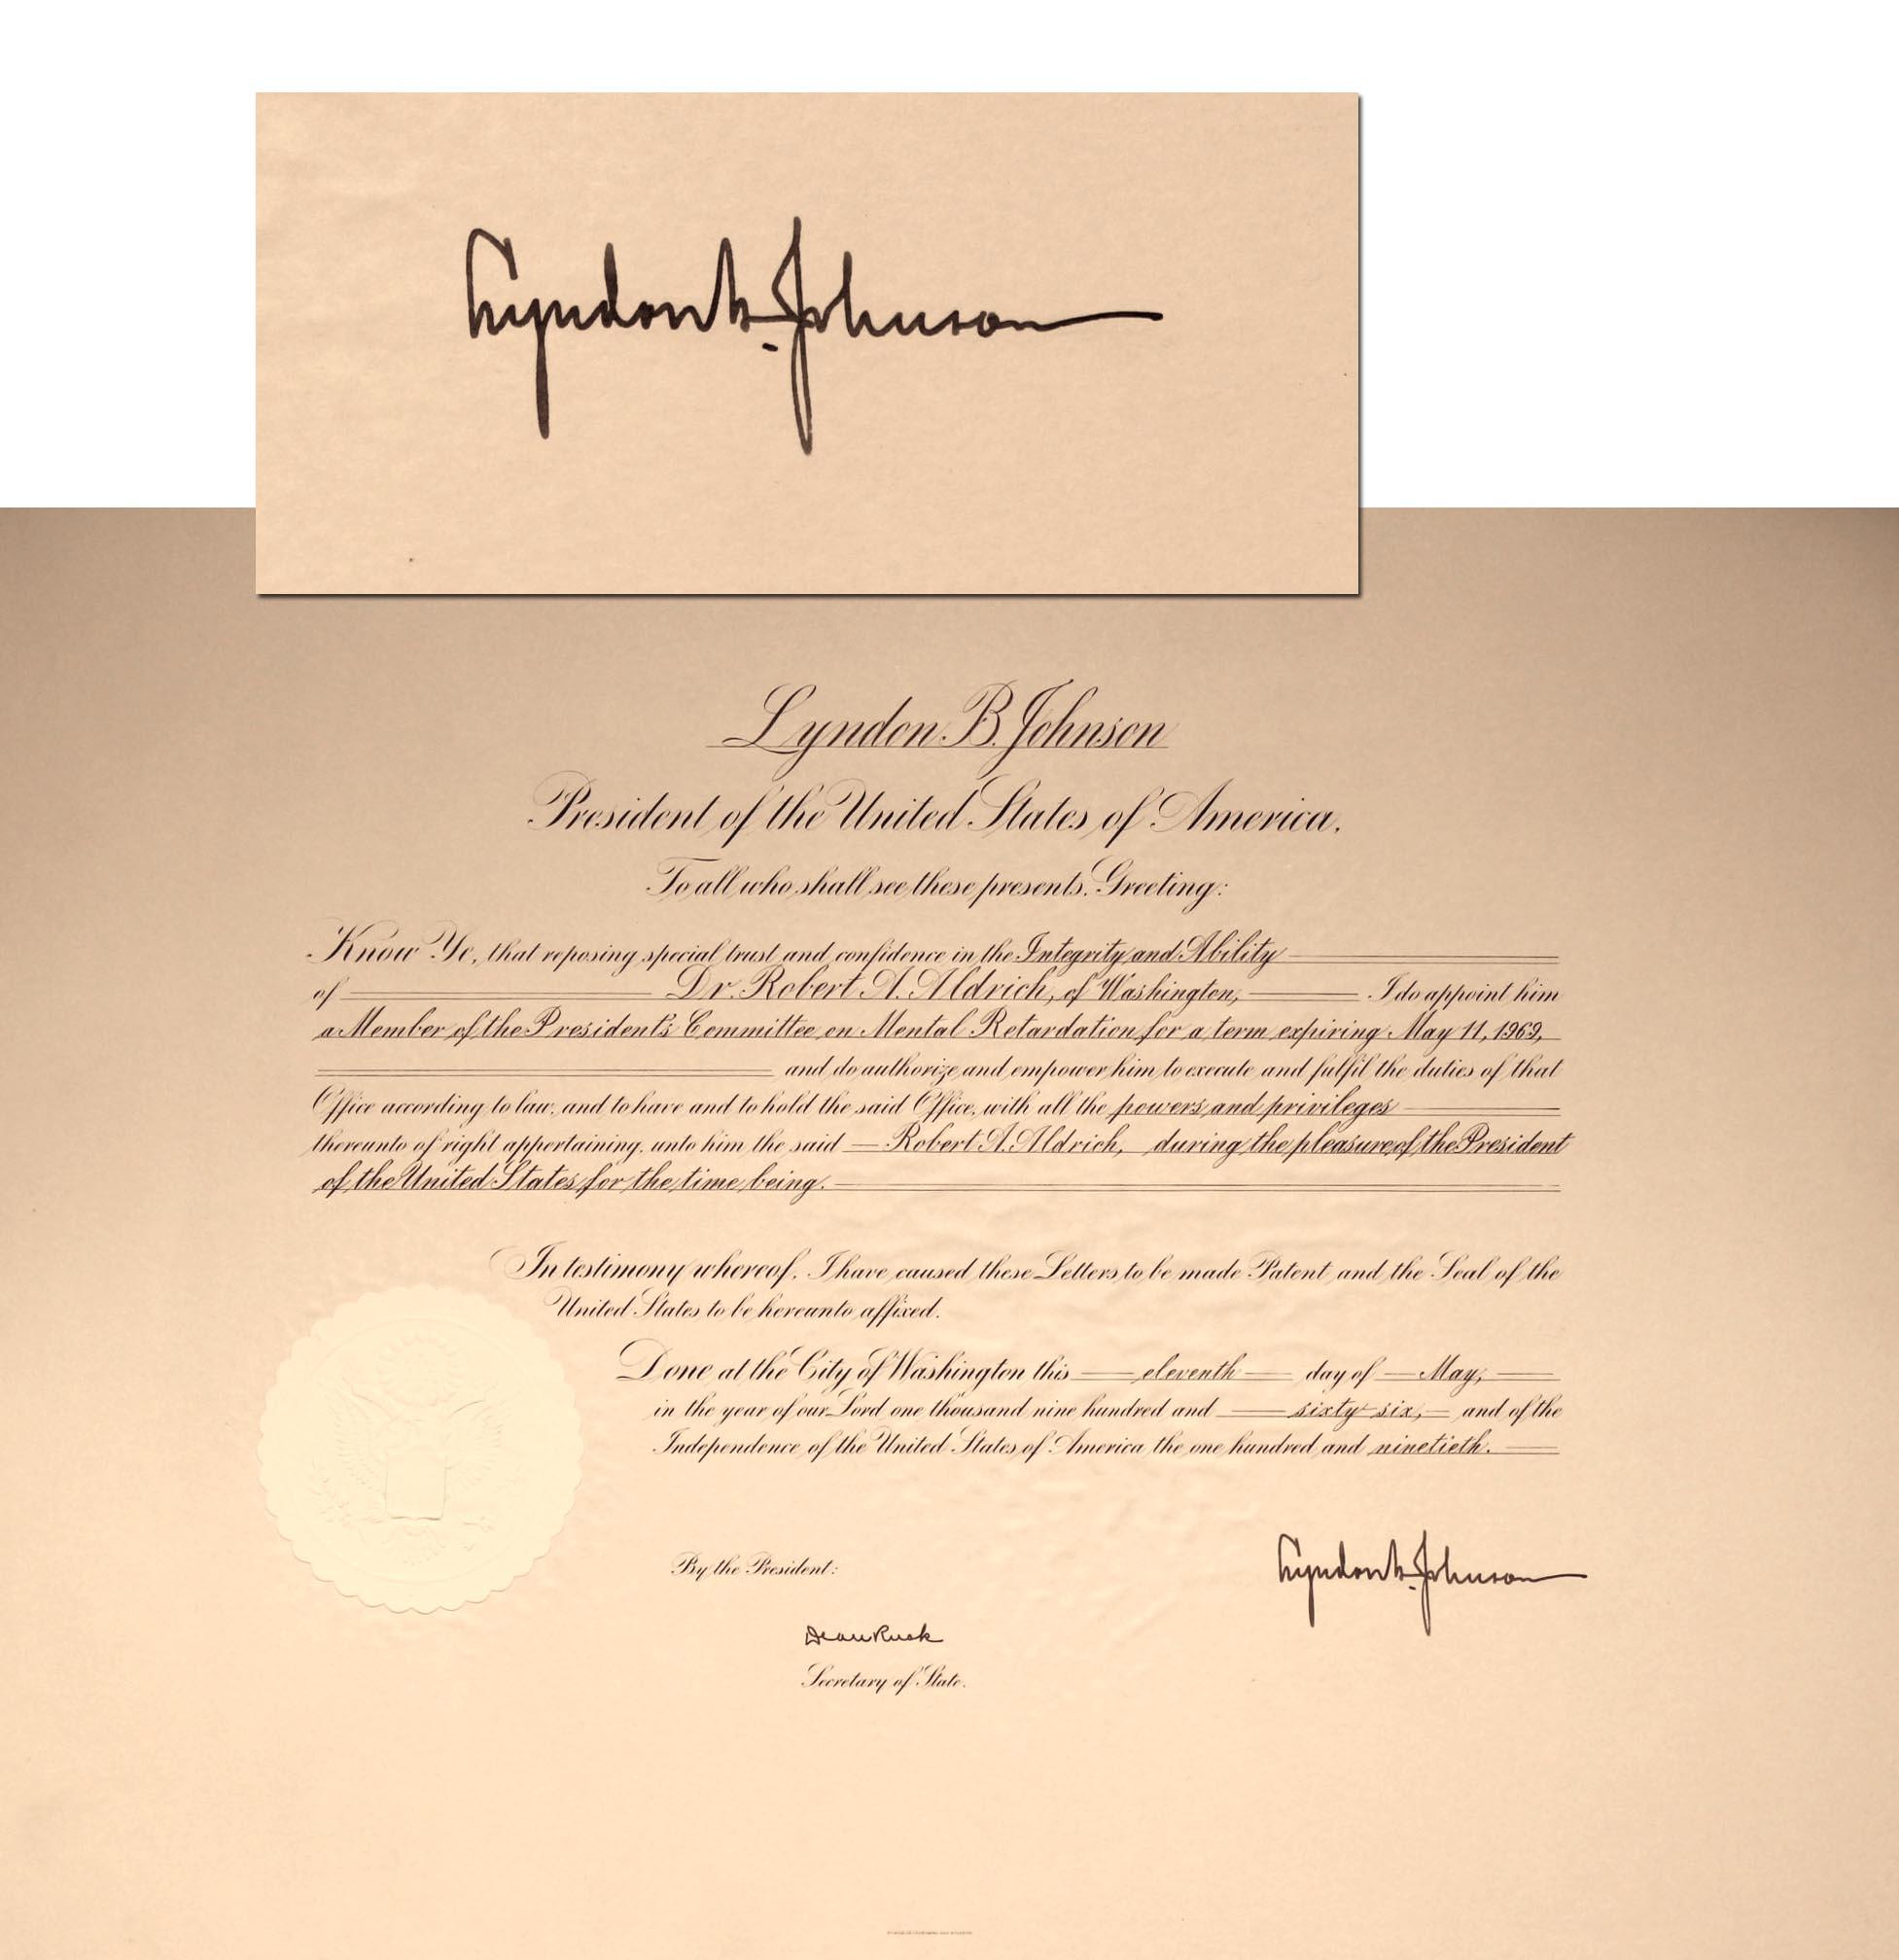 Lyndon B. Johnson
Lyndon B. Johnson
President of the United States of America.
To all who shall see these presents, Greeting:
Know Ye, that reposing special trust and confidence in the Integrity and Ability
of Dr. Robert A. Aldrich, of Washington, I do appoint him
a Member of the President's Committee on Mental Retardation for a term expiring May 11, 1969,
and do authorize and empower him to execute and fulfil the duties of that
Office according to law, and to have and to hold the said Office, with all the powers and privileges
thereunto of right appertaining, unto him the said Robert A. Aldrich, during the pleasure of the President
of the United States for the time being.
In testimony whereof, I have caused these Letters to be made Patent and the Seal of the
United States to be hereunto affixed.
Done at the City of Washington this eleventh day of May,
in the year of our Lord one thousand nine hundred and sixty-six, and of the
Independence of the United States of America the one hundred and ninetieth.
Lyndon B. Johnson
By the President:
Dean Rusk
Secretary of State.